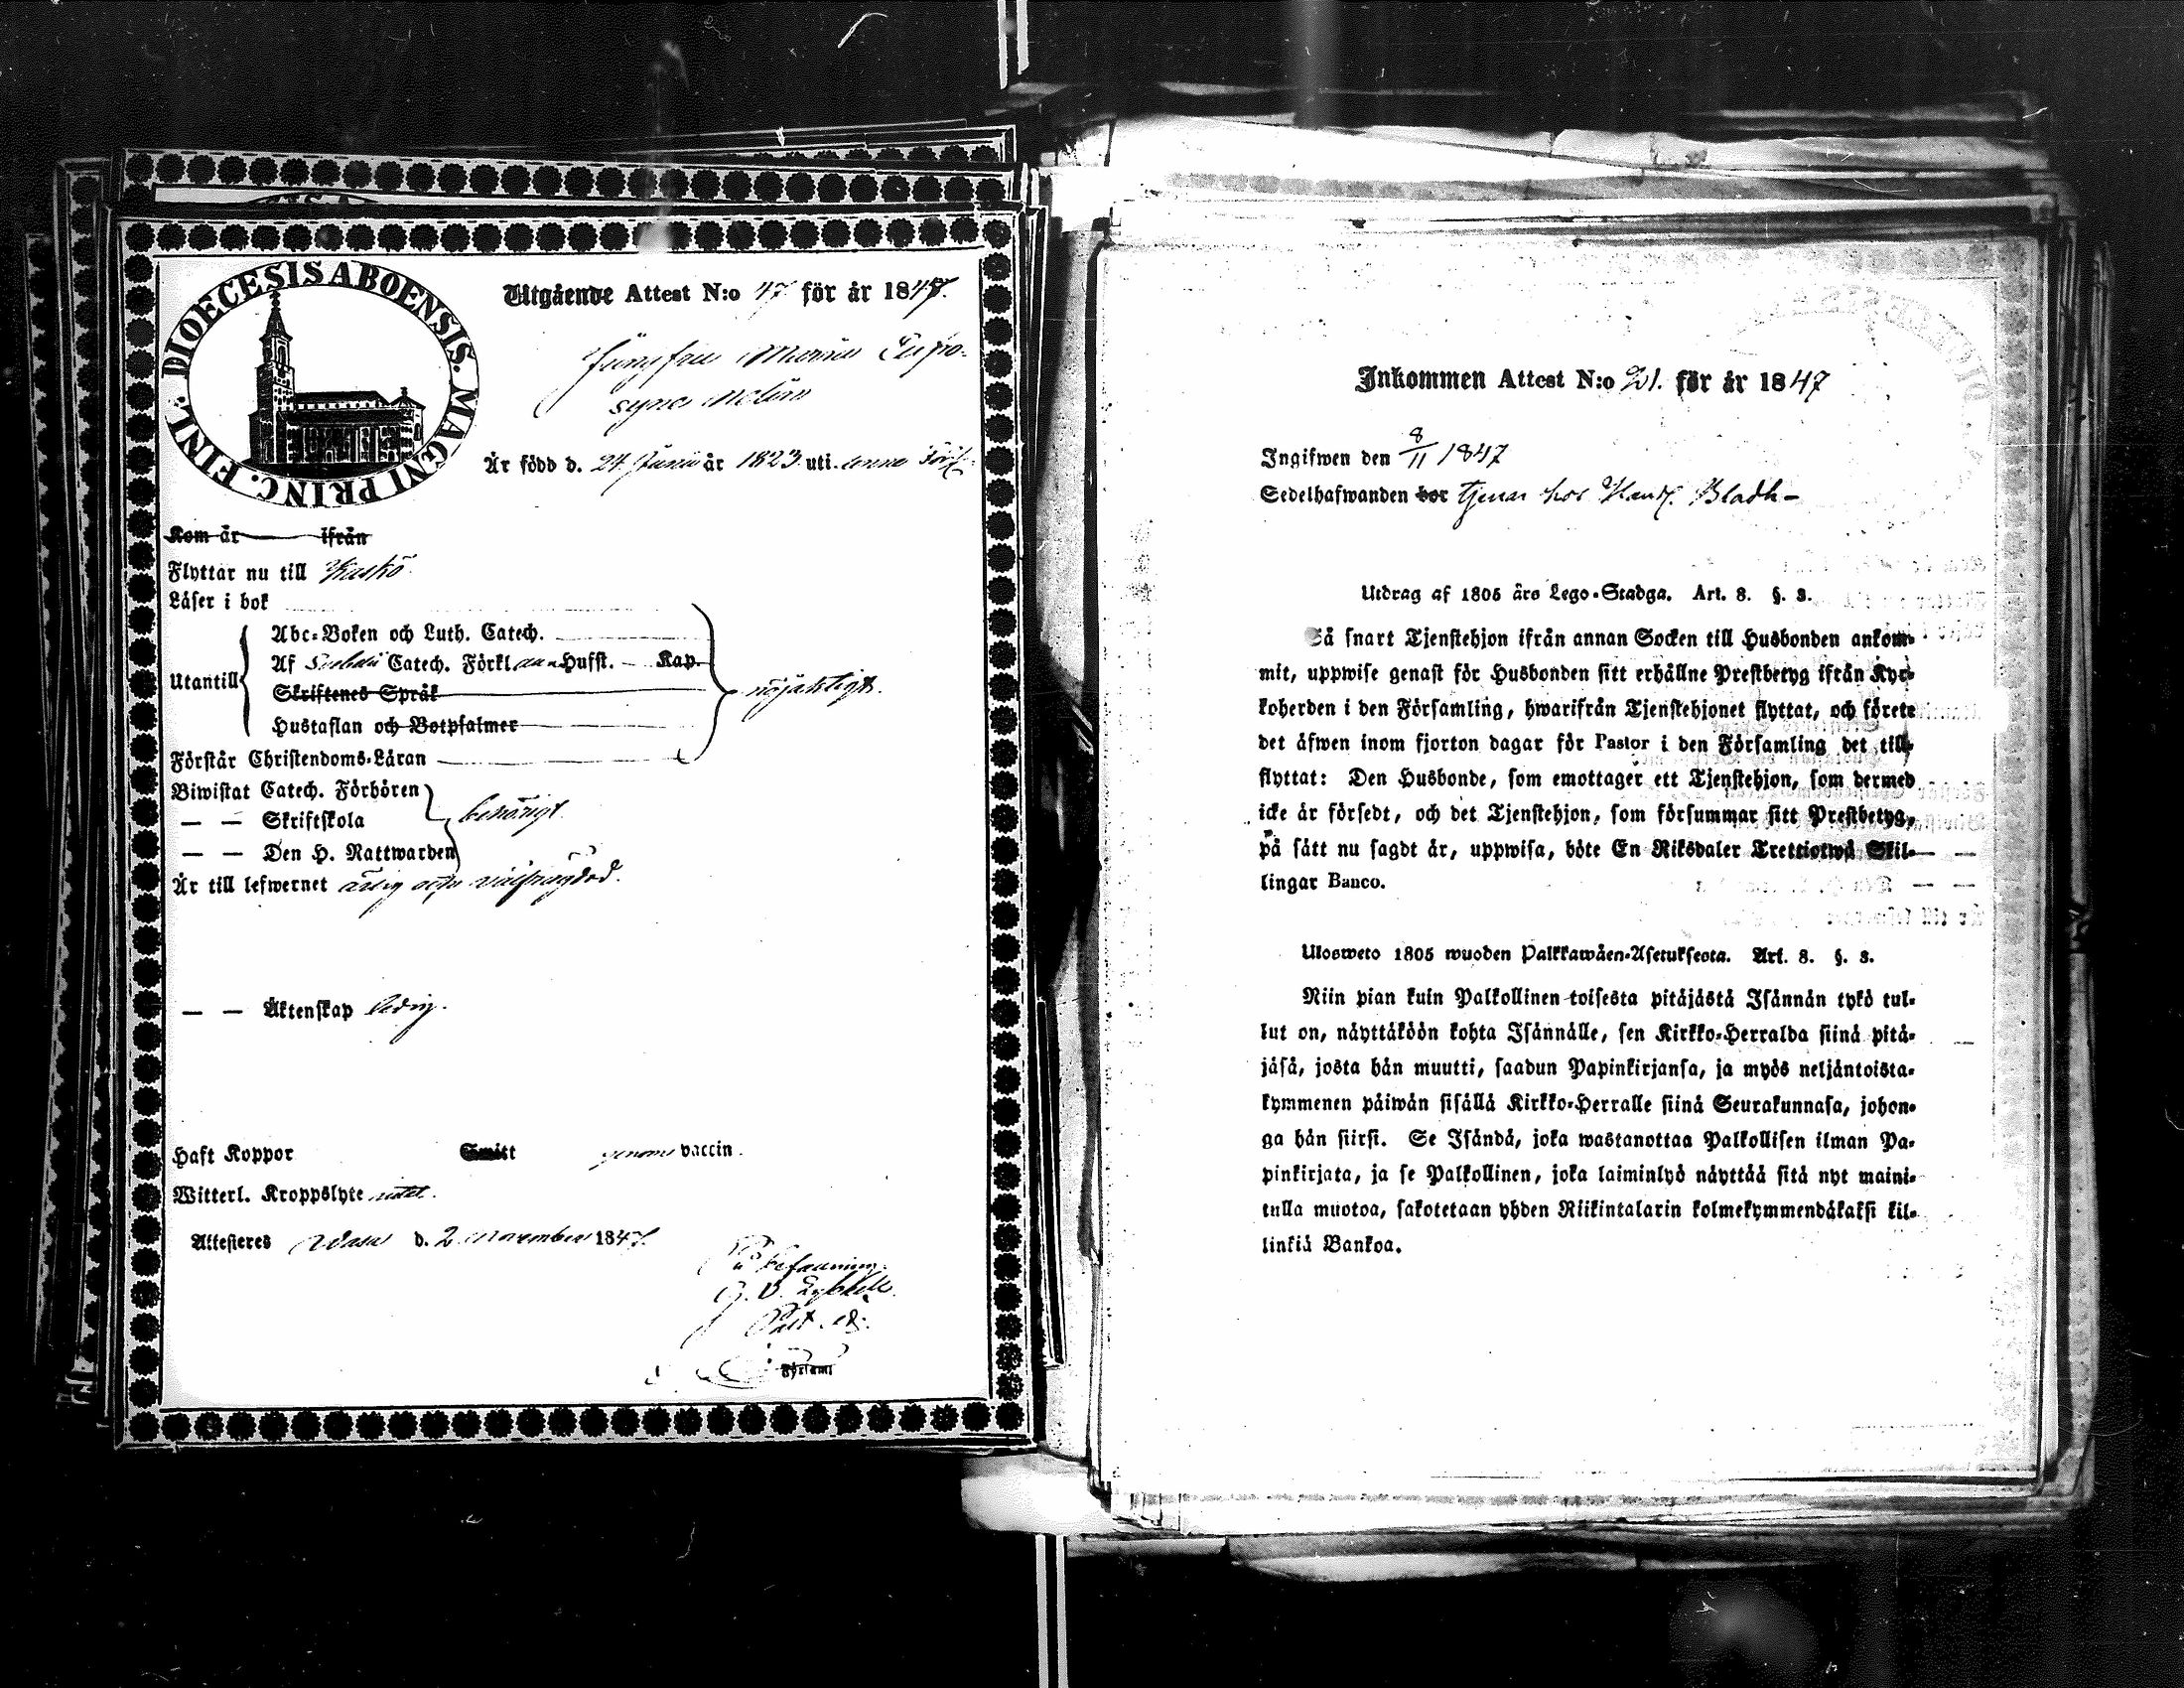 DIOECESIS ABOENSIS. MAGNI PRINC. FINL.
Utgående Attest N:o 47. för år 1847.
Jungfru Maria Eufro-
syne Melin
Är född d. 24 Junii år 1823 uti denne Förs.
Kom år ifrån
Flyttar nu till Kaskö.
Läser i bok
Abc-Boken och Luth. Catech.
Af Svebelii Catech. Förkl Hufst. Kap.
Utantill
Skriftenes Språk
nöjaktigt.
Hustaflan och Botpsalmer
Förstår Christendoms-Läran
Biwistat Catech. Förhören
— — Skriftskola
behörigt.
— — Den H. Nattwarden
Är till lefwernet ärlig och välfrägdad.
— — Äktenskap ledig.
Haft Koppor Smitt genom vaccin.
Witterl. Kroppslyte intet.
Attesteras Wasa d. 2 november 1847.
På befallning
Past. adj.
Förlamt
Inkommen Attest N:o 21. för år 1847
Ingifwen den 8/11 1847
Sedelhafwanden bor tjenar hos Handl. Bladh–
Utdrag af 1805 års Lego-Stadga. Art. 8. §. 3.
Så snart Tjenstehjon ifrån annan Socken till Husbonden ankom-
mit, uppwise genast för Husbonden sitt erhållne Prestbetyg ifrån Kyr-
koherden i den Församling, hwarifrån Tjenstehjonet flyttat, och förete
det äfwen inom fjorton dagar för Pastor i den Församling det till-
flyttat: Den Husbonde, som emottager ett Tjenstehjon, som dermed
icke är försedt, och det Tjenstehjon, som försummar sitt Prestbetyg,
på sätt nu sagdt är, uppwisa, böte En Riksdaler Trettiotwå Skil-
lingar Banco.
Ulosweto 1805 wuoden Palkkawäen-Asetuksesta. Art. 8. §. 3.
Niin pian kuin Palkollinen toisesta pitäjästä Isännän tykö tul-
lut on, näyttäköön kohta Isännälle, sen Kirkko-Herralda siinä pitä-
jäsä, josta hän muutti, saadun Papinkirjansa, ja myös neljäntoista-
kymmenen päiwän sisällä Kirkko-Herralle siinä Seurakunnasa, johon-
ga hän siirsi. Se Isändä, joka wastanottaa Palkollisen ilman Pa-
pinkirjata, ja se Palkollinen, joka laiminlyö näyttää sitä nyt maini-
tulla muotoa, sakotetaan yhden Riikintalarin kolmekymmendäkaksi kil-
linkiä Bankoa.